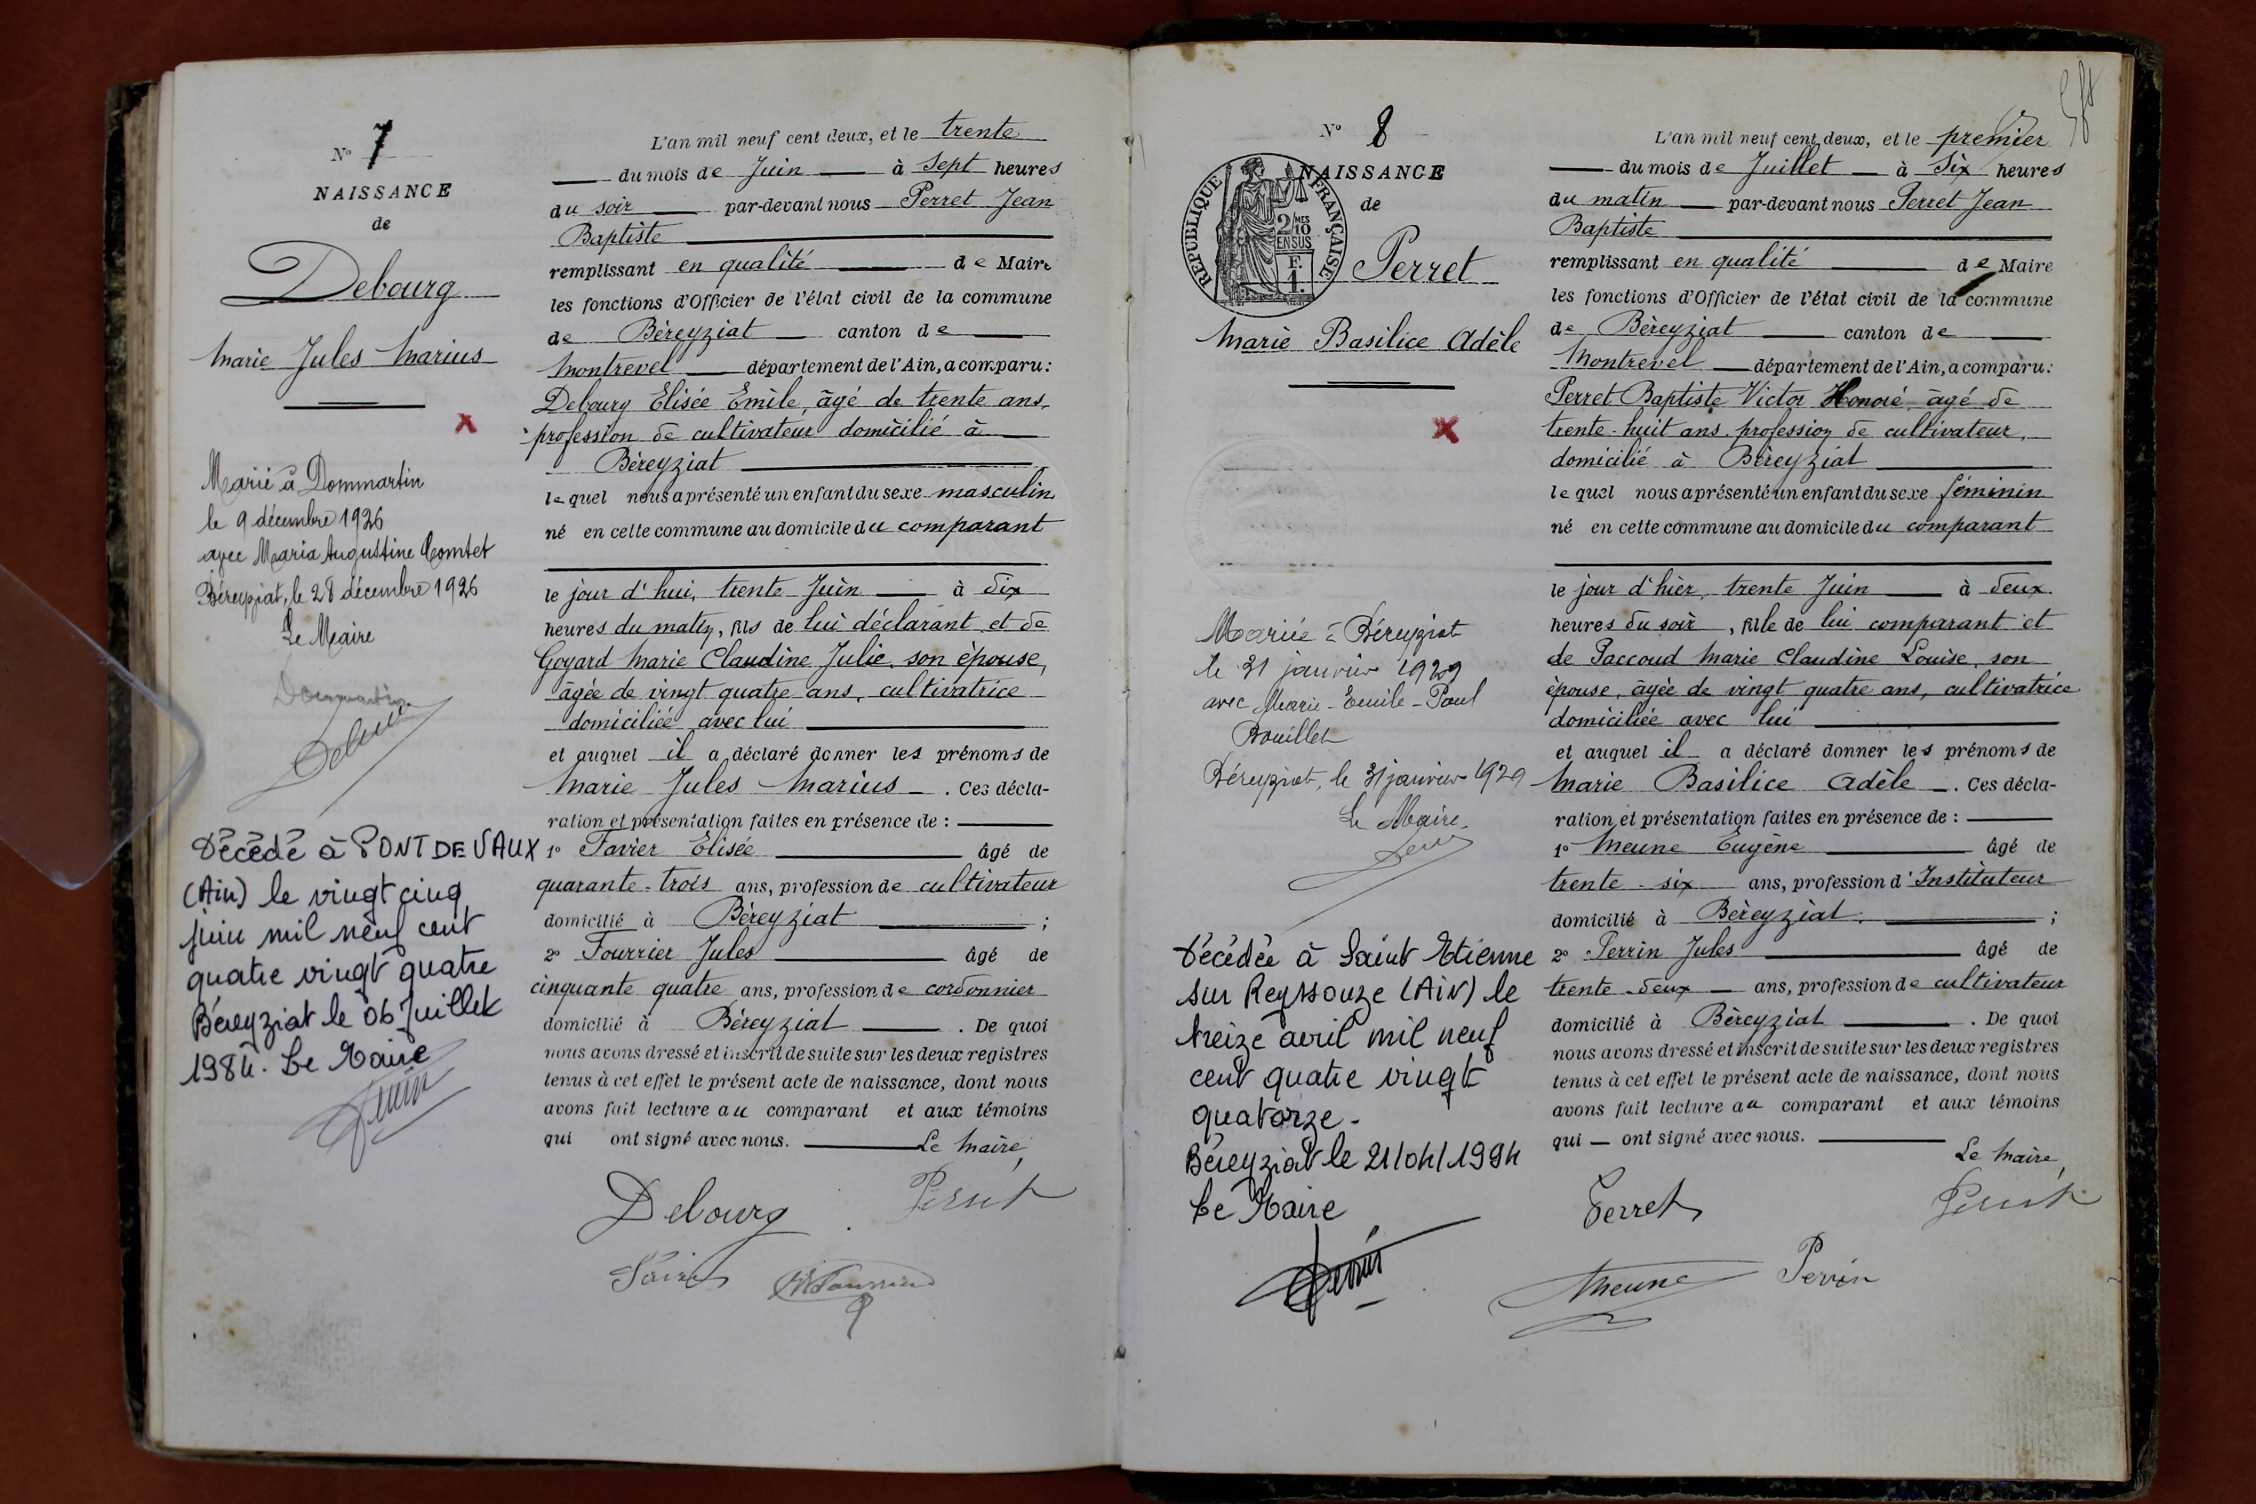 N° 7
NAISSANCE
de
Debourg
Marie Jules Marius
Marié à Dommartin
le 9 décembre 1926
avec Maria Augustine Comtet
Béreyziat, le 28 décembre 1926
Le Maire
Décédé à PONT DE VAUX
(Ain) le vingt cinq
juin mil neuf cent
quatre vingt quatre
Béreyziat le 06 Juillet
1984. Le Maire
L'an mil neuf cent deux, et le trente
du mois de Juin à Sept heures
du soir par-devant nous Perret Jean
Baptiste
remplissant en qualité de Maire
les fonctions d'Officier de l'état civil de la commune
de Béreyziat canton de
Montrevel département de l'Ain, a comparu:
Debourg Elisée Emile, âgé de trente ans,
profession de cultivateur domicilié à
Béreyziat
lequel nous a présenté un enfant du sexe masculin
né en cette commune au domicile du comparant
le jour d'hui, trente Juin à dix
heures du matin, fils de lui déclarant et de
Goyard Marie Claudine Julie, son épouse,
âgée de vingt quatre ans, cultivatrice
domiciliée avec lui
et auquel il a déclaré donner les prénoms de
Marie Jules Marius. Ces décla-
ration et présentation faites en présence de :
1° Favier Elisée âgé de
quarante-trois ans, profession de cultivateur
domicilié à Béreyziat ;
2° Fourrier Jules âgé de
cinquante quatre ans, profession de cordonnier
domicilié à Béreyziat. De quoi
nous avons dressé et inscrit de suite sur les deux registres
tenus à cet effet le présent acte de naissance, dont nous
avons fait lecture au comparant et aux témoins
qui ont signé avec nous. Le Maire,
Debourg Perret
N° 8
NAISSANCE
de
RÉPUBLIQUE FRANÇAISE
2/10MES
EN SUS
F.
1.
Perret
Marie Basilice Adèle
Mariée à Béreyziat
le 31 janvier 1929
avec Marie-Emile-Paul
Rouillet
Béreyziat, le 31 janvier 1929
Le Maire.
Décédée à Saint Etienne
sur Reyssouze (AIN) le
treize avril mil neuf
cent quatre vingt
quatorze -
Béreyziat le 21/04/1994
Le Maire
L'an mil neuf cent deux, et le premier
du mois de Juillet à Six heures
du matin par-devant nous Perret Jean
Baptiste
remplissant en qualité de Maire
les fonctions d'Officier de l'état civil de la commune
de Béreyziat canton de
Montrevel département de l'Ain, a comparu:
Perret Baptiste Victor Honoré âgé de
trente-huit ans profession de cultivateur,
domicilié à Béreyziat
lequel nous a présenté un enfant du sexe féminin
né en cette commune au domicile du comparant
le jour d'hier, trente Juin à deux
heures du soir, fille de lui comparant et
de Paccoud Marie Claudine Louise, son
épouse, âgée de vingt quatre ans, cultivatrice
domiciliée avec lui
et auquel il a déclaré donner les prénoms de
Marie Basilice Adèle. Ces décla-
ration et présentation faites en présence de :
1° Meune Eugène âgé de
trente-six ans, profession d'Instituteur
domicilié à Béreyziat. ;
2° Perrin Jules âgé de
trente-deux ans, profession de cultivateur
domicilié à Béreyziat. De quoi
nous avons dressé et inscrit de suite sur les deux registres
tenus à cet effet le présent acte de naissance, dont nous
avons fait lecture au comparant et aux témoins
qui ont signé avec nous.
Le Maire,
Perret Perret
Meune Perrin